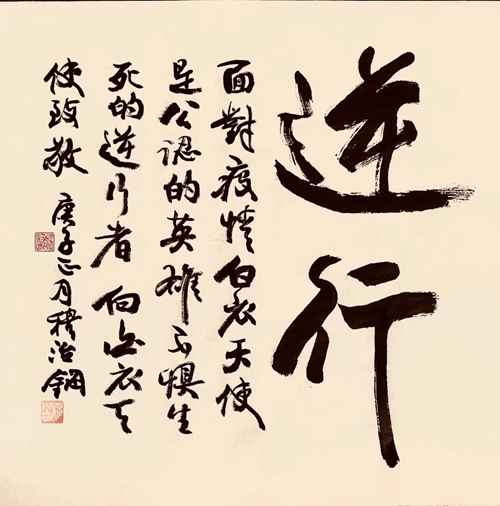 逆行
面對疫情白衣天使
是公認的英雄不懼生
死的逆行者向白衣天
使致敬 庚子正月穆治鋼